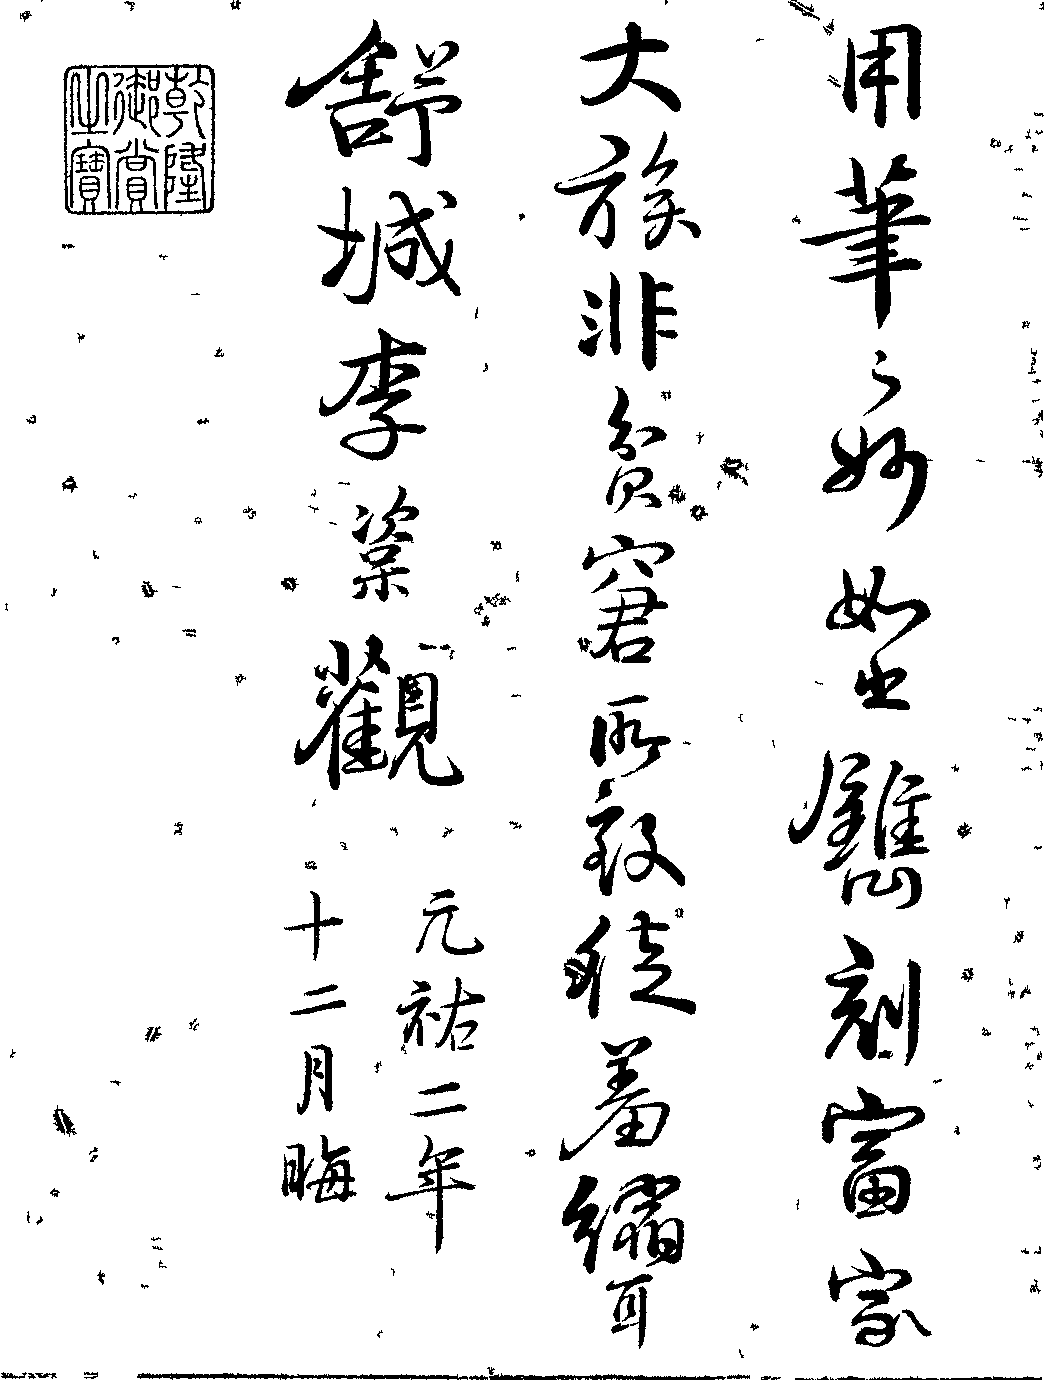 用筆之妙如出鐫刻富家
大族非貧窘所致徒羞縮耳
舒城李楶觀
元祐二年
十二月晦
乾隆
御賞
之寶